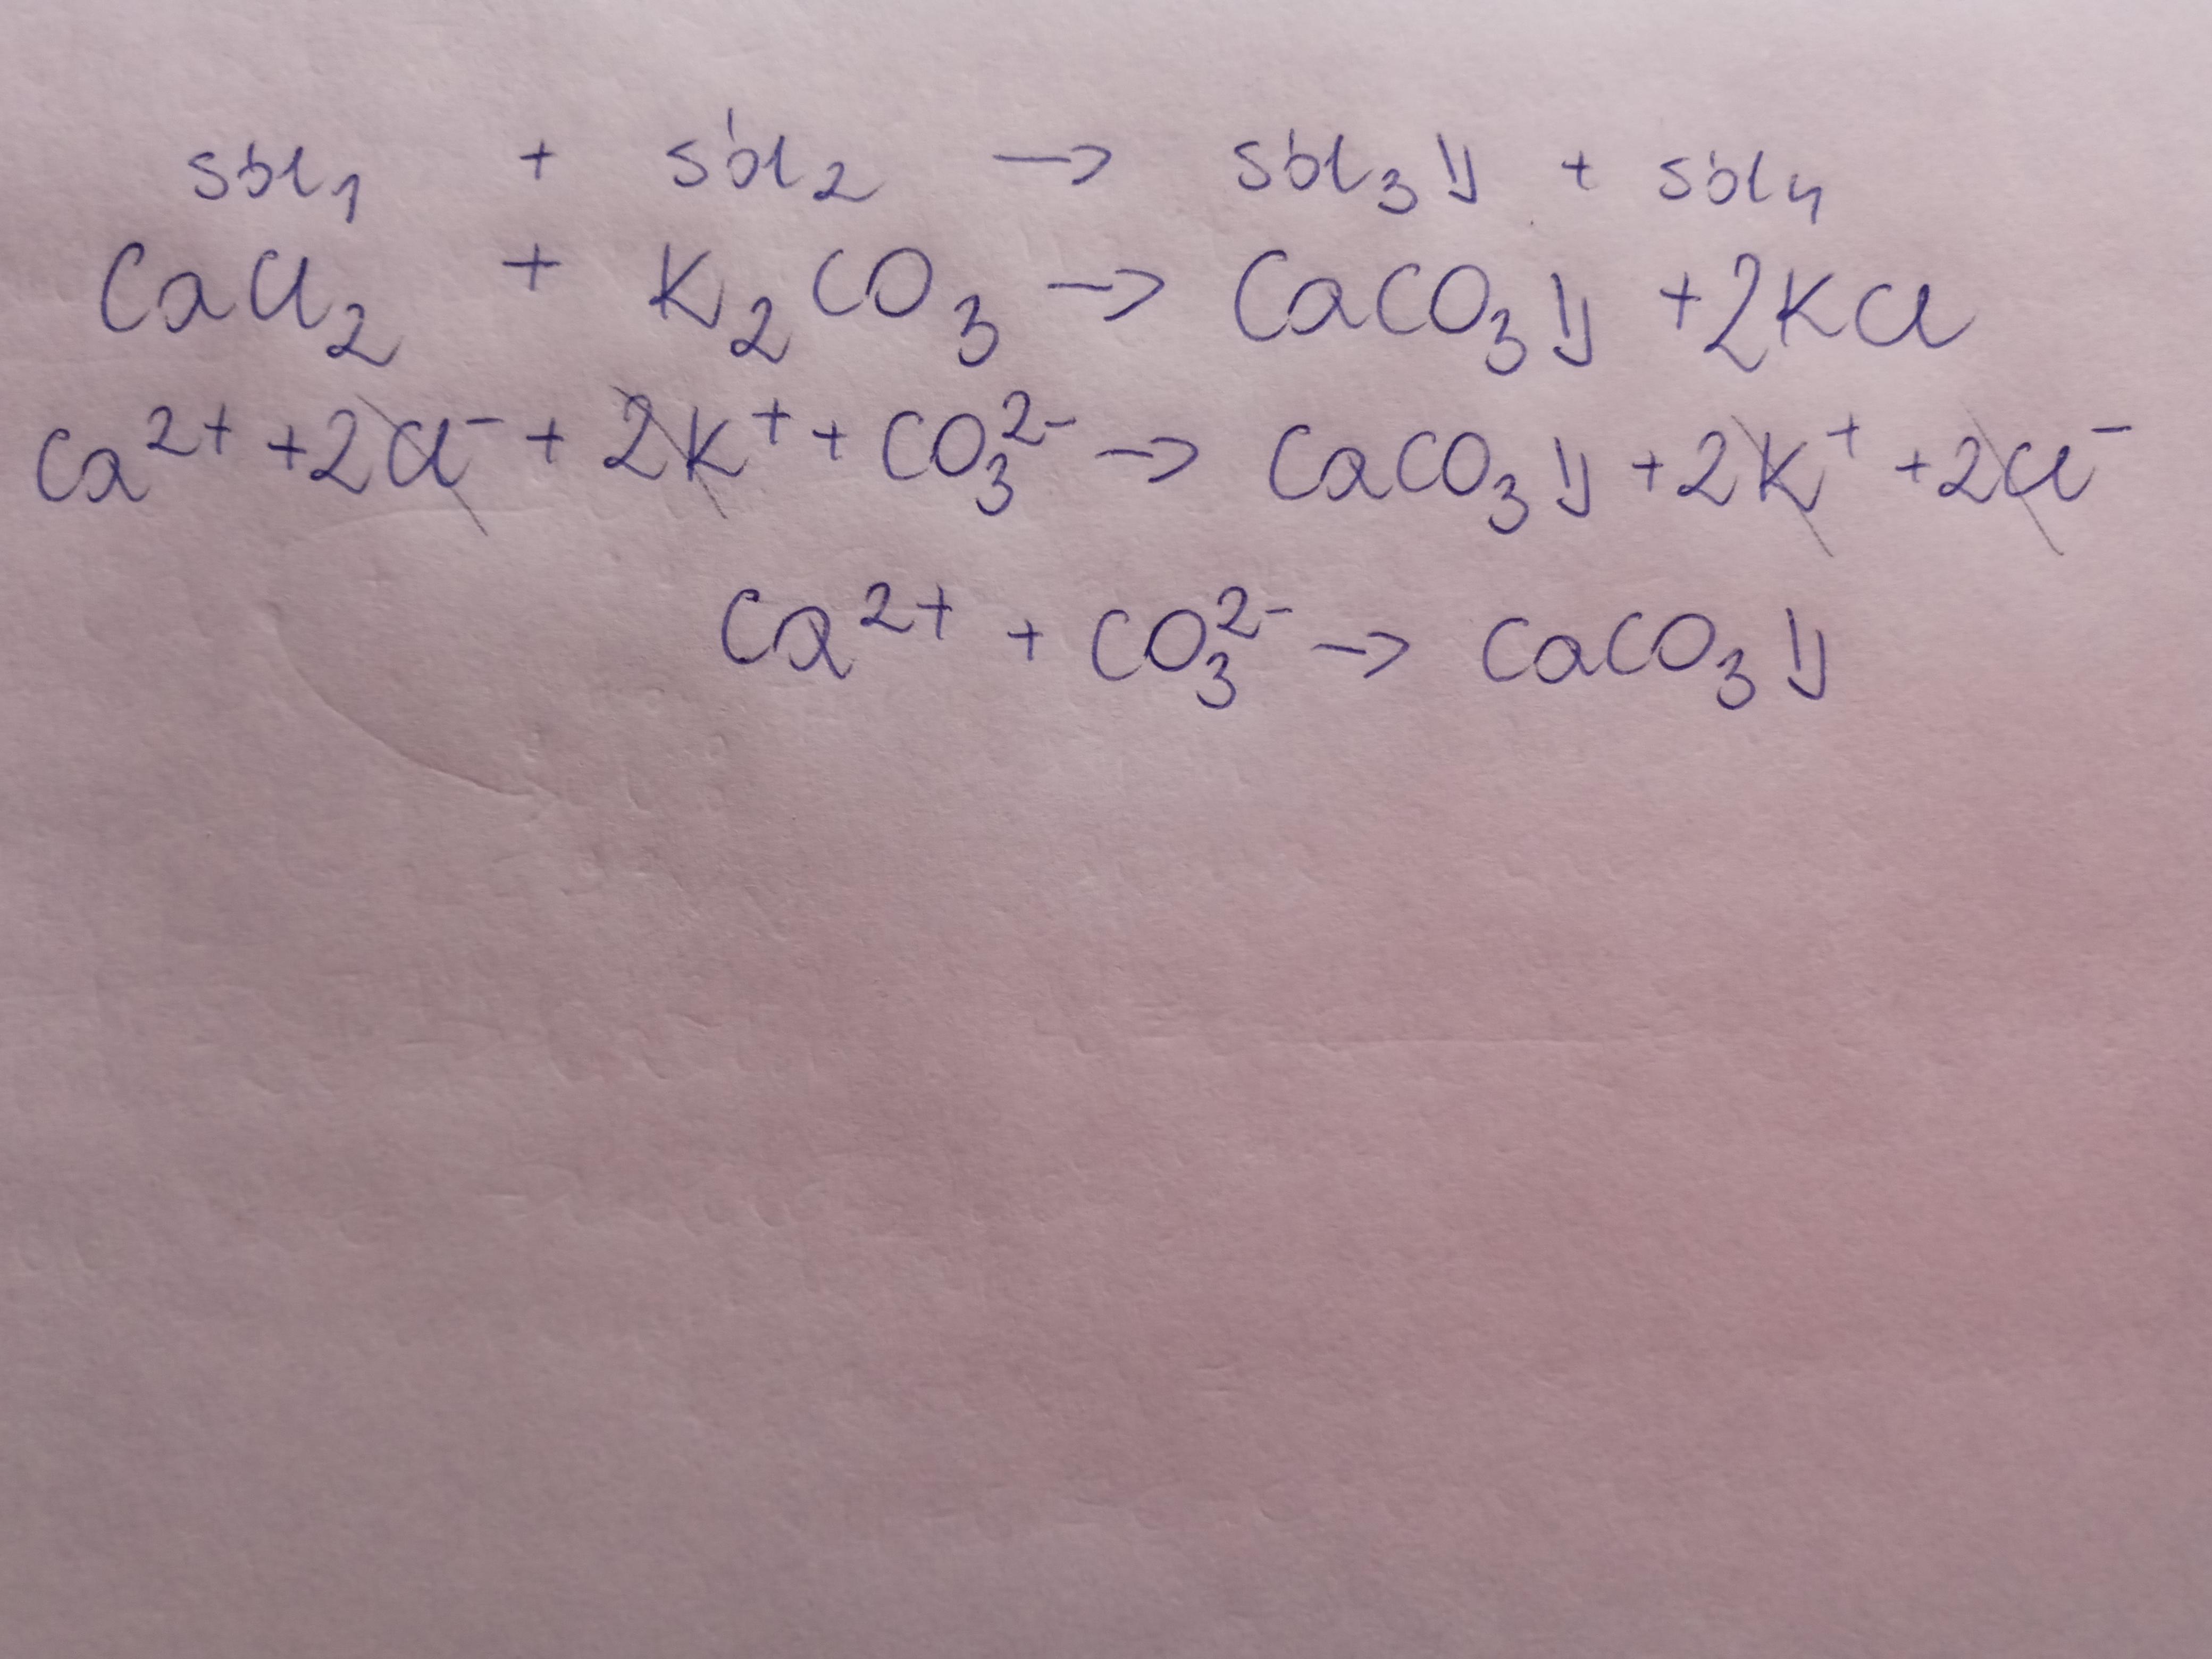 sól₁ + sól₂ → sól₃↓ + sól₄
CaCl₂ + K₂CO₃ → CaCO₃↓ + 2KCl
Ca²⁺ + 2Cl⁻ + 2K⁺ + CO₃²⁻ → CaCO₃↓ + 2K⁺ + 2Cl⁻
Ca²⁺ + CO₃²⁻ → CaCO₃↓